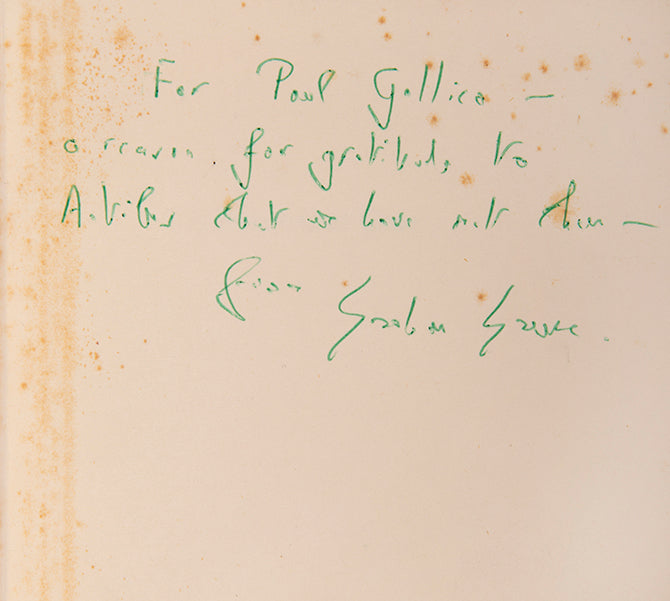 For Paul Gallico —
a reason for gratitude to
Antibes that we have met there —
from
Graham Greene.